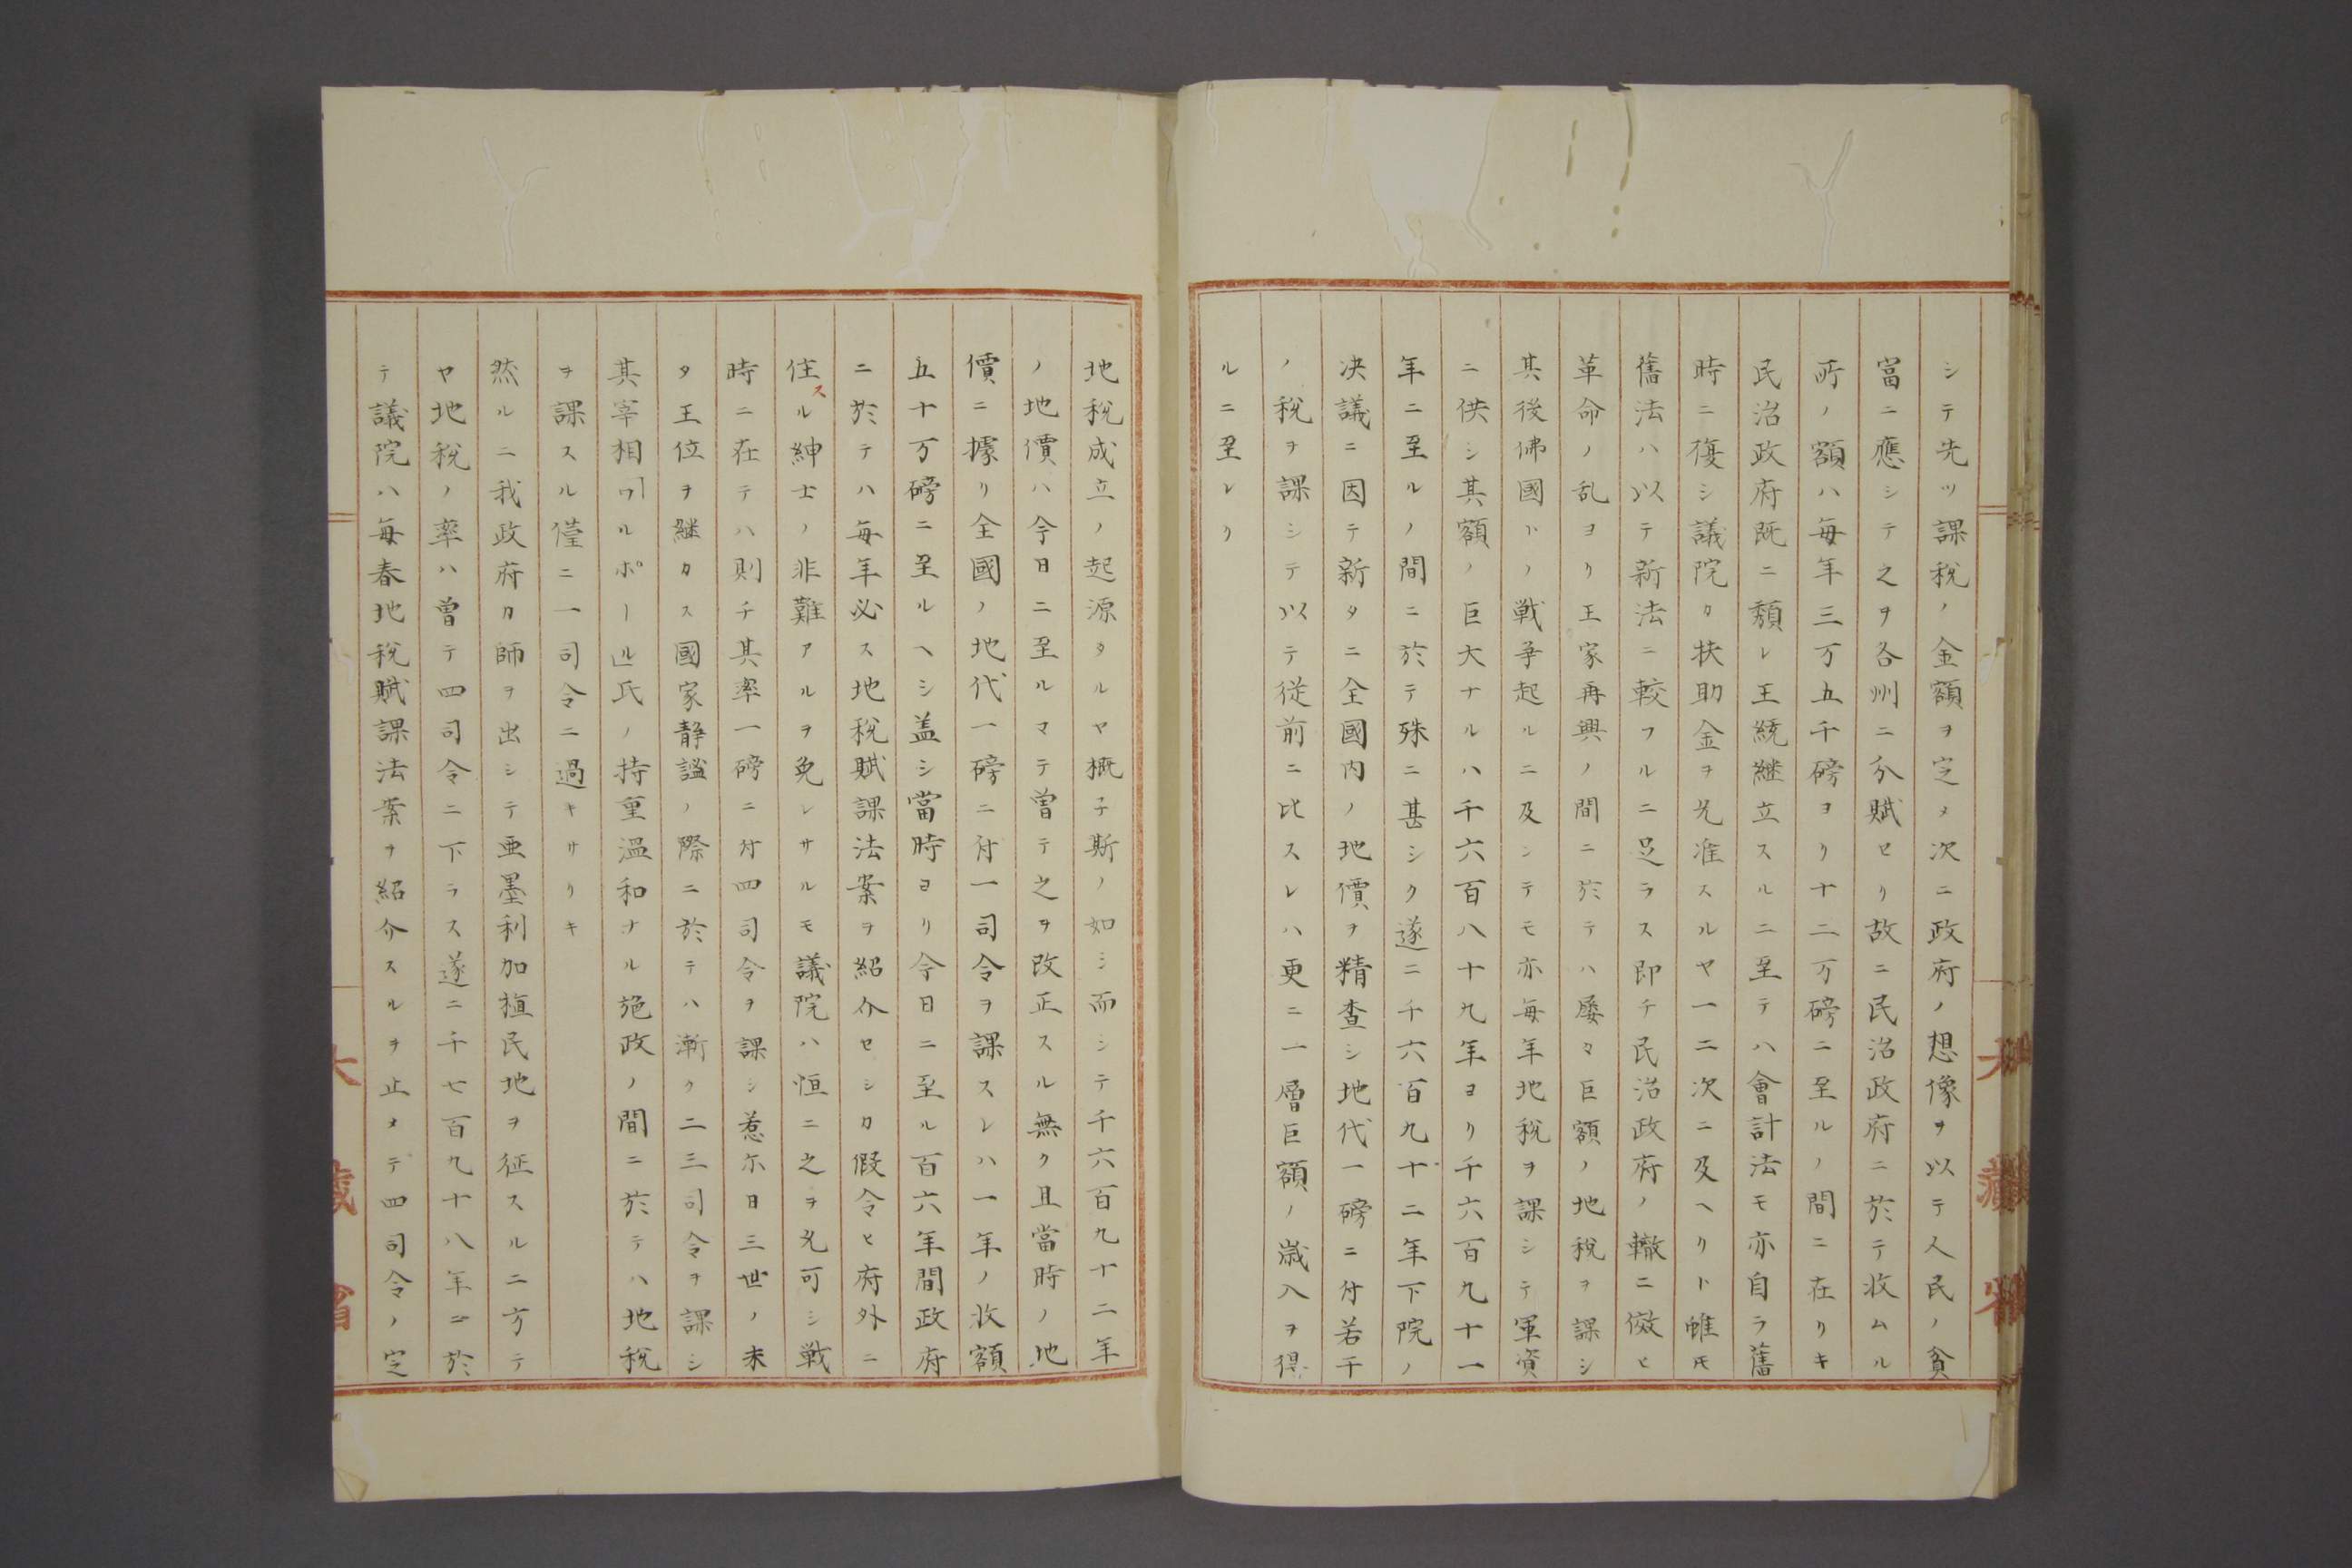 シテ先ツ課税ノ金額ヲ定メ次ニ政府ノ想像ヲ以テ人民ノ貧
富ニ應シテ之ヲ各州ニ分賦セリ故ニ民治政府ニ於テ收ムル
所ノ額ハ毎年三万五千磅ヨリ十二万磅ニ至ルノ間ニ在リキ
民治政府既ニ頽レ王統継立スルニ至テハ會計法モ亦自ラ舊
時ニ復シ議院カ扶助金ヲ允准スルヤ一二次ニ及ヘリト雖モ
舊法ハ以テ新法ニ較フルニ足ラス即チ民治政府ノ轍ニ倣ヒ
革命ノ乱ヨリ王家再興ノ間ニ於テハ屡々巨額ノ地税ヲ課シ
其後佛國トノ戦争起ルニ及ンテモ亦毎年地税ヲ課シテ軍資
ニ供シ其額ノ巨大ナルハ千六百八十九年ヨリ千六百九十一
年ニ至ルノ間ニ於テ殊ニ甚シク遂ニ千六百九十二年下院ノ
决議ニ因テ新タニ全國内ノ地價ヲ精査シ地代一磅ニ付若干
ノ税ヲ課シテ以テ従前ニ比スレハ更ニ一層巨額ノ歳入ヲ得
ルニ至レリ
大藏省
地税成立ノ起源タルヤ概子斯ノ如シ而シテ千六百九十二年
ノ地價ハ今日ニ至ルマテ曽テ之ヲ改正スル無ク且當時ノ地
價ニ據リ全國ノ地代一磅ニ付一司令ヲ課スレハ一年ノ收額
五十万磅ニ至ルヘシ盖シ當時ヨリ今日ニ至ル百六年間政府
ニ於テハ毎年必ス地税賦課法案ヲ紹介セシカ假令ヒ府外ニ
住スル紳士ノ非難アルヲ免レサルモ議院ハ恒ニ之ヲ允可シ戦
時ニ在テハ則チ其率一磅ニ付四司令ヲ課シ惹尓日三世ノ未
タ王位ヲ継カス國家静謐ノ際ニ於テハ漸ク二三司令ヲ課シ
其宰相「ワルポール」氏ノ持重温和ナル施政ノ間ニ於テハ地税
ヲ課スル僅ニ一司令ニ過キサリキ
然ルニ我政府カ師ヲ出シテ亜墨利加植民地ヲ征スルニ方テ
ヤ地税ノ率ハ曽テ四司令ニ下ラス遂ニ千七百九十八年ニ於
テ議院ハ毎春地税賦課法案ヲ紹介スルヲ止メテ四司令ノ定
大藏省